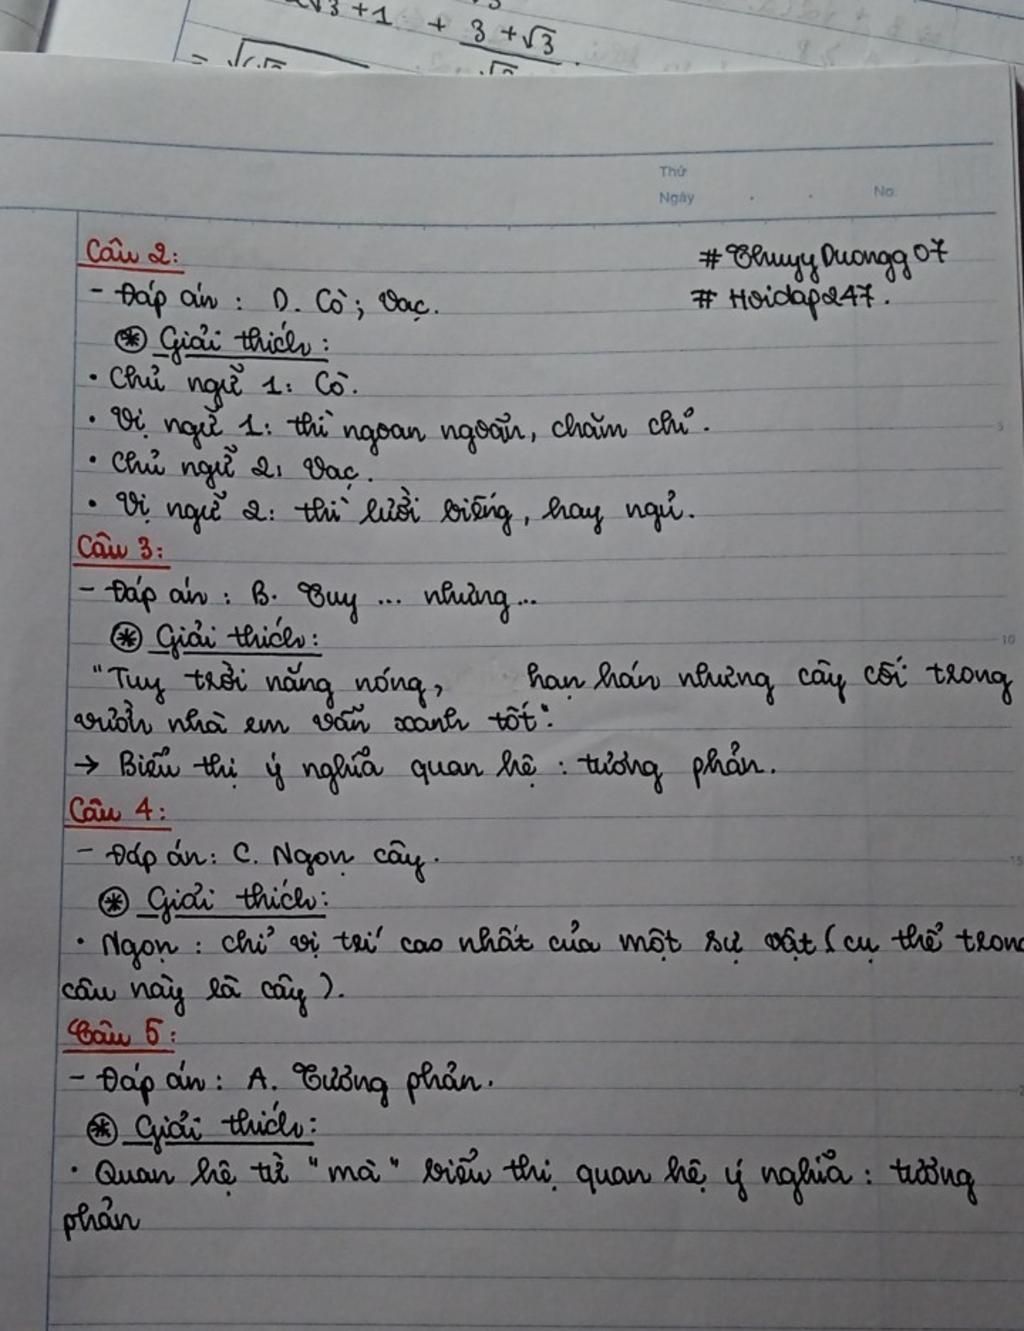 √3 +1 + 3 + √3
=
Thứ
Ngày . . No.
Câu 2: #ThuyyDuongg07
- Đáp án : D. Cò ; Vạc. # Hoidap247.
⊛ Giải thích :
• Chủ ngữ 1: Cò.
• Vị ngữ 1: thì ngoan ngoãn, chăm chỉ.
• Chủ ngữ 2: Vạc.
• Vị ngữ 2: thì lười biếng, hay ngủ.
Câu 3:
- Đáp án : B. Tuy ... nhưng...
⊛ Giải thích :
"Tuy trời nắng nóng, hạn hán nhưng cây cối trong
vườn nhà em vẫn xanh tốt".
→ Biểu thị ý nghĩa quan hệ : tương phản.
Câu 4:
- Đáp án: C. Ngọn cây.
⊛ Giải thích:
• Ngọn : chỉ vị trí cao nhất của một sự vật (cụ thể tron
câu này là cây).
Câu 5:
- Đáp án : A. Tương phản.
⊛ Giải thích:
• Quan hệ từ "mà" biểu thị quan hệ ý nghĩa : tương
phản
5
10
15